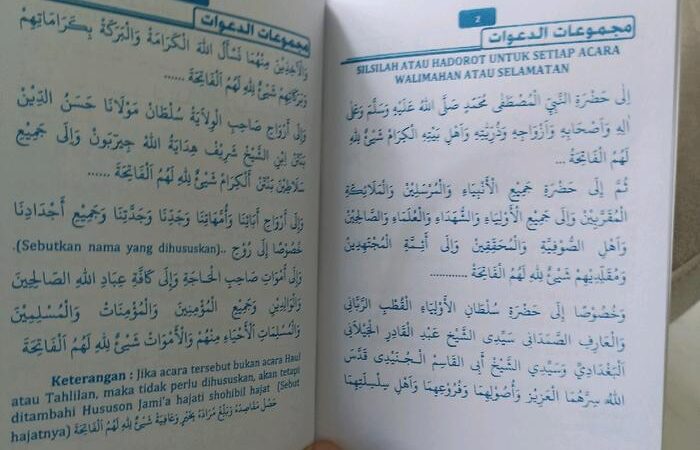 ٢
مجموعات الدعوات
SILSILAH ATAU HADOROT UNTUK SETIAP ACARA
WALIMAHAN ATAU SELAMATAN
اِلَى حَضْرَةِ النَّبِيِّ الْمُصْطَفَى مُحَمَّدٍ صَلَّى اللهُ عَلَيْهِ وَسَلَّمَ وَعَلَى
اٰلِهِ وَاَصْحَابِهِ وَاَزْوَاجِهِ وَذُرِّيَّتِهِ وَاَهْلِ بَيْتِهِ الْكِرَامِ شَيْئٌ لِلّٰهِ
لَهُمُ الْفَاتِحَةُ ...
ثُمَّ اِلَى حَضْرَةِ جَمِيْعِ الْأَنْبِيَاءِ وَالْمُرْسَلِيْنَ وَالْمَلَائِكَةِ
الْمُقَرَّبِيْنَ وَاِلَى جَمِيْعِ الْأَوْلِيَاءِ وَالشُّهَدَاءِ وَالْعُلَمَاءِ وَالصَّالِحِيْنَ
وَاَهْلِ الصُّوْفِيَّةِ وَالْمُحَقِّقِيْنَ وَاِلَى اَئِمَّةِ الْمُجْتَهِدِيْنَ
وَمُقَلِّدِيْهِمْ شَيْئٌ لِلّٰهِ لَهُمُ الْفَاتِحَةُ ............
وَخُصُوْصًا اِلَى حَضْرَةِ سُلْطَانِ الْأَوْلِيَاءِ الْقُطْبِ الرَّبَّانِي
وَالْعَارِفِ الصَّمَدَانِي سَيِّدِى الشَّيْخِ عَبْدِ الْقَادِرِ الْجَيْلَانِي
الْبَغْدَادِيِّ وَسَيِّدِى الشَّيْخِ أَبِى الْقَاسِمِ الْجُنَيْدِى قَدَّسَ
اللهُ سِرَّهُمَا الْعَزِيْزَ وَأُصُوْلِهِمَا وَفُرُوْعِهِمَا وَاَهْلِ سِلْسِلَتِهِمَا
مجموعات الدعوات
وَالْاٰخِذِيْنَ مِنْهُمَا نَسْأَلُ اللهَ الْكَرَامَةَ وَالْبَرَكَةَ بِكَرَامَاتِهِمْ
وَبَرَكَاتِهِمْ شَيْئٌ لِلّٰهِ لَهُمُ الْفَاتِحَةُ ......
وَاِلَى اَرْوَاحِ صَاحِبِ الْوِلَايَةِ سُلْطَانْ مَوْلَانَا حَسَنُ الدِّيْنِ
بَنْتَنْ اِبْنِ الشَّيْخِ شَرِيْفْ هِدَايَةُ اللهْ چِرَبَوْنْ وَاِلَى جَمِيْعِ
سَلَاطِيْنِ بَنْتَنْ الْكِرَامِ شَيْئٌ لِلّٰهِ لَهُمُ الْفَاتِحَةُ ......
وَاِلَى اَرْوَاحِ اٰبَائِنَا وَأُمَّهَاتِنَا وَجَدِّنَا وَجَدَّتِنَا وَجَمِيْعِ أَجْدَادِنَا
خُصُوْصًا اِلَى رُوْحِ ..(Sebutkan nama yang dihususkan).
وَاِلَى اَمْوَاتِ صَاحِبِ الْحَاجَةِ وَاِلَى كَافَّةِ عِبَادِ اللهِ الصَّالِحِيْنَ
وَالْوَالِدَيْنِ وَجَمِيْعِ الْمُؤْمِنِيْنَ وَالْمُؤْمِنَاتِ وَالْمُسْلِمِيْنَ
وَالْمُسْلِمَاتِ الْأَحْيَاءِ مِنْهُمْ وَالْأَمْوَاتِ شَيْئٌ لِلّٰهِ لَهُمُ الْفَاتِحَةُ
Keterangan : Jika acara tersebut bukan acara Haul
atau Tahlilan, maka tidak perlu dihususkan, akan tetapi
ditambahi Hususon Jami'a hajati shohibil hajat (Sebut
hajatnya) حَصَلَ مَقَاصِدُهُ وَبَلَغَ مُرَادَهُ بِخَيْرٍ وَعَافِيَةٍ شَيْئٌ لِلّٰهِ لَهُمُ الْفَاتِحَةُ